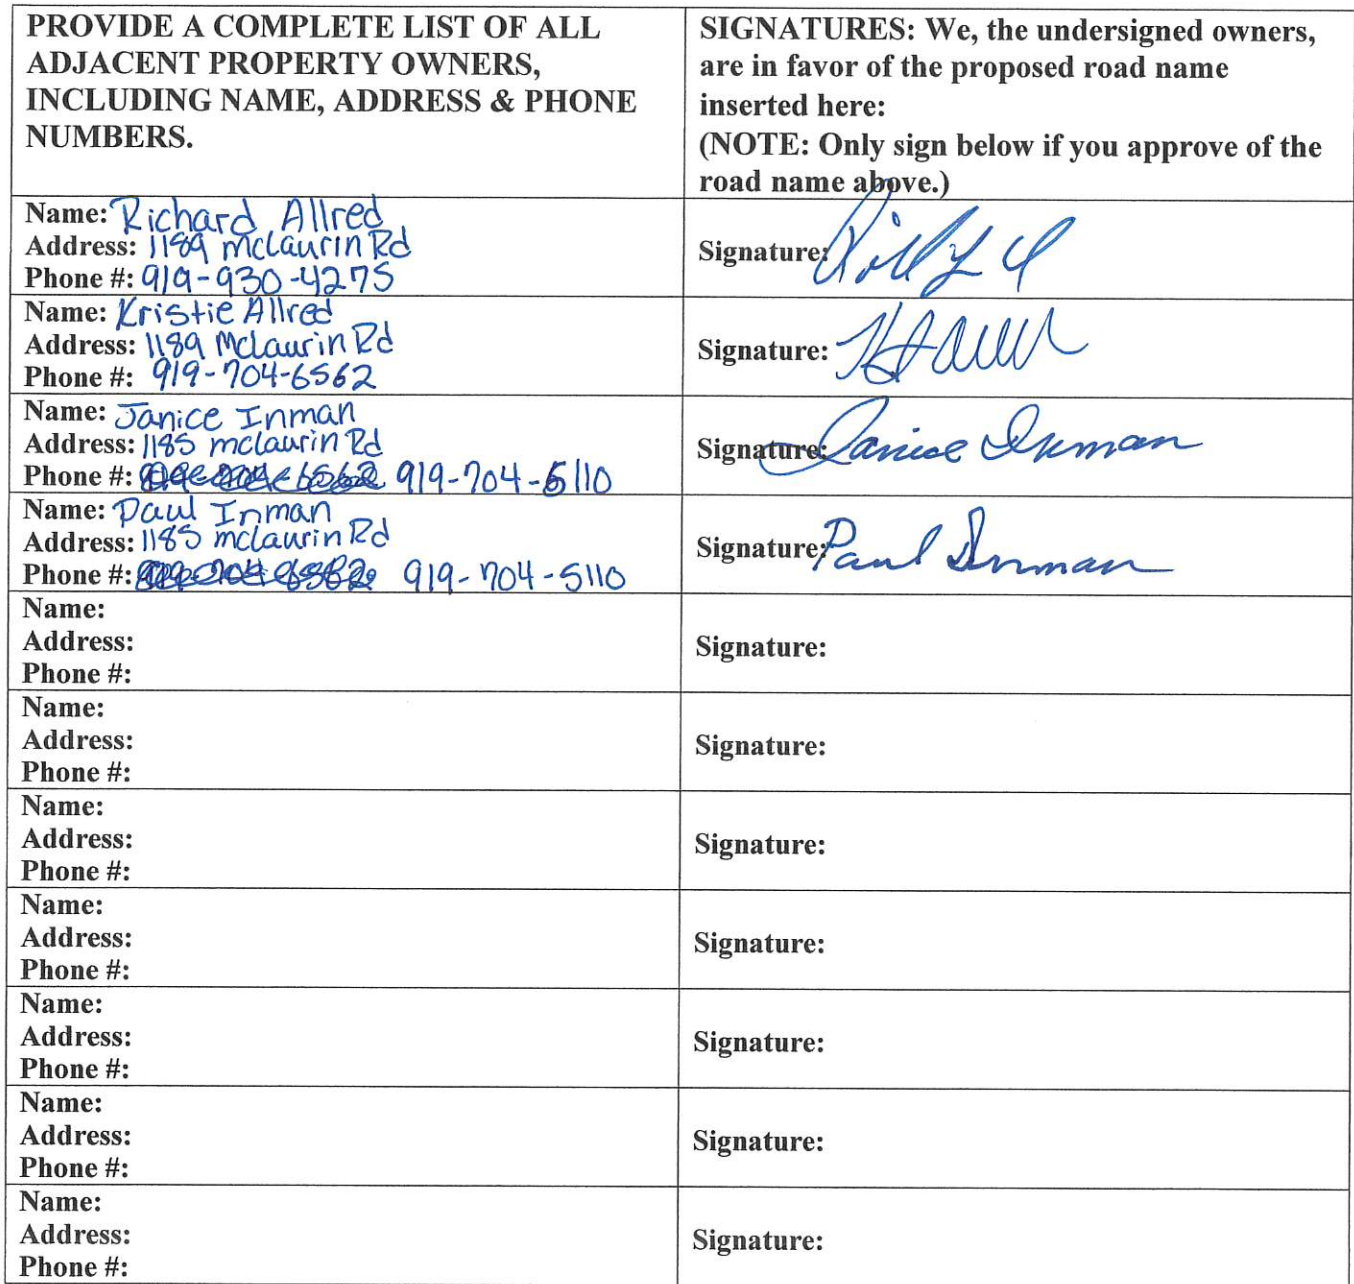 PROVIDE A COMPLETE LIST OF ALL
ADJACENT PROPERTY OWNERS,
INCLUDING NAME, ADDRESS & PHONE
NUMBERS.
SIGNATURES: We, the undersigned owners,
are in favor of the proposed road name
inserted here:
(NOTE: Only sign below if you approve of the
road name above.)
Name: Richard Allred
Address: 1189 mclaurin Rd
Phone #: 919-930-4275
Signature:
Name: Kristie Allred
Address: 1189 Mclaurin Rd
Phone #: 919-704-6562
Signature:
Name: Janice Inman
Address: 1185 mclaurin Rd
Phone #: 919-704-5110
Signature: Janice Inman
Name: Paul Inman
Address: 1185 mclaurin Rd
Phone #: 919-704-5110
Signature: Paul Inman
Name:
Address:
Phone #:
Signature:
Name:
Address:
Phone #:
Signature:
Name:
Address:
Phone #:
Signature:
Name:
Address:
Phone #:
Signature:
Name:
Address:
Phone #:
Signature:
Name:
Address:
Phone #:
Signature:
Name:
Address:
Phone #:
Signature: